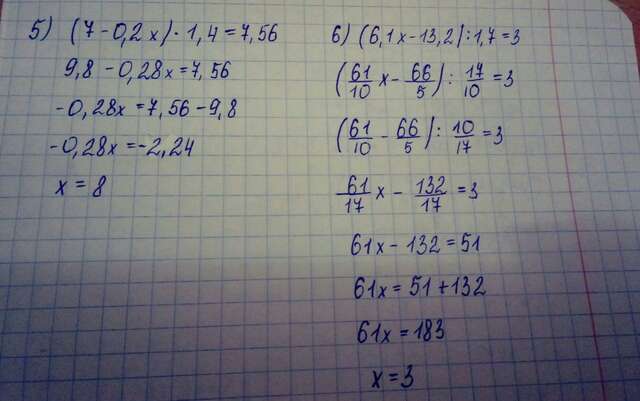 5) (7 - 0,2x) · 1,4 = 7,56
9,8 - 0,28x = 7,56
-0,28x = 7,56 - 9,8
-0,28x = -2,24
x = 8
6) (6,1x - 13,2) : 1,7 = 3
(61/10 x - 66/5) : 17/10 = 3
(61/10 - 66/5) : 10/17 = 3
61/17 x - 132/17 = 3
61x - 132 = 51
61x = 51 + 132
61x = 183
x = 3